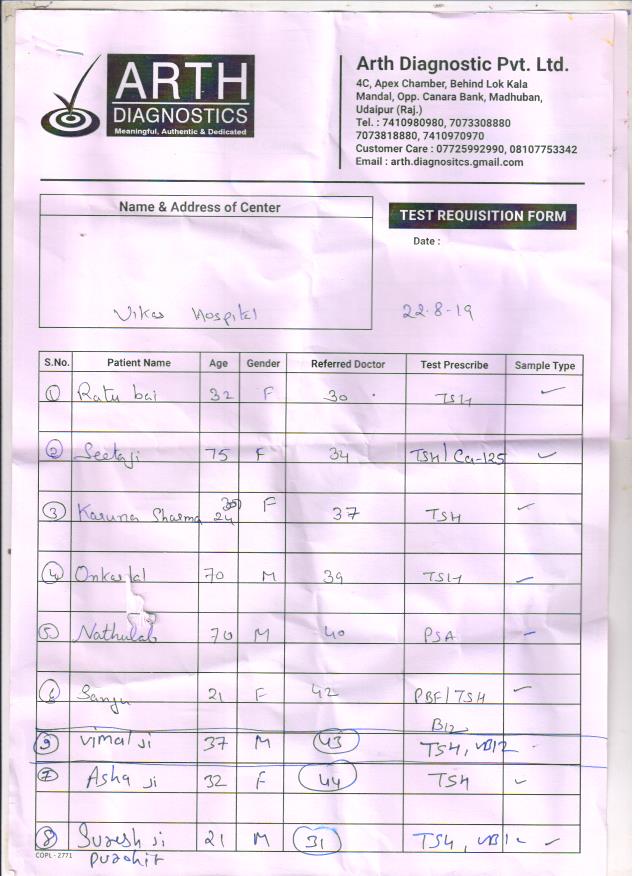 ARTH
DIAGNOSTICS
Meaningful, Authentic & Dedicated
Arth Diagnostic Pvt. Ltd.
4C, Apex Chamber, Behind Lok Kala
Mandal, Opp. Canara Bank, Madhuban,
Udaipur (Raj.)
Tel. : 7410980980, 7073308880
7073818880, 7410970970
Customer Care : 07725992990, 08107753342
Email : arth.diagnositcs.gmail.com
Name & Address of Center
TEST REQUISITION FORM
Date :
Vikas Hospital
22-8-19
S.No. Patient Name Age Gender Referred Doctor Test Prescribe Sample Type
1 Ratu bai 32 F 30 TSH
2 Seetaji 75 F 34 TSH/Ca-125
3 Karuna Sharma 24 F 37 TSH
4 Onkarlal 70 M 39 TSH
5 Nathulal 70 M 40 PSA
6 Sanju 21 F 42 PBF/TSH
B12
9 Vimal Ji 37 M 43 TSH, VB12
7 Asha Ji 32 F 44 TSH
8 Suresh Ji 21 M 31 TSH, VB12
purohit
COPL - 2771